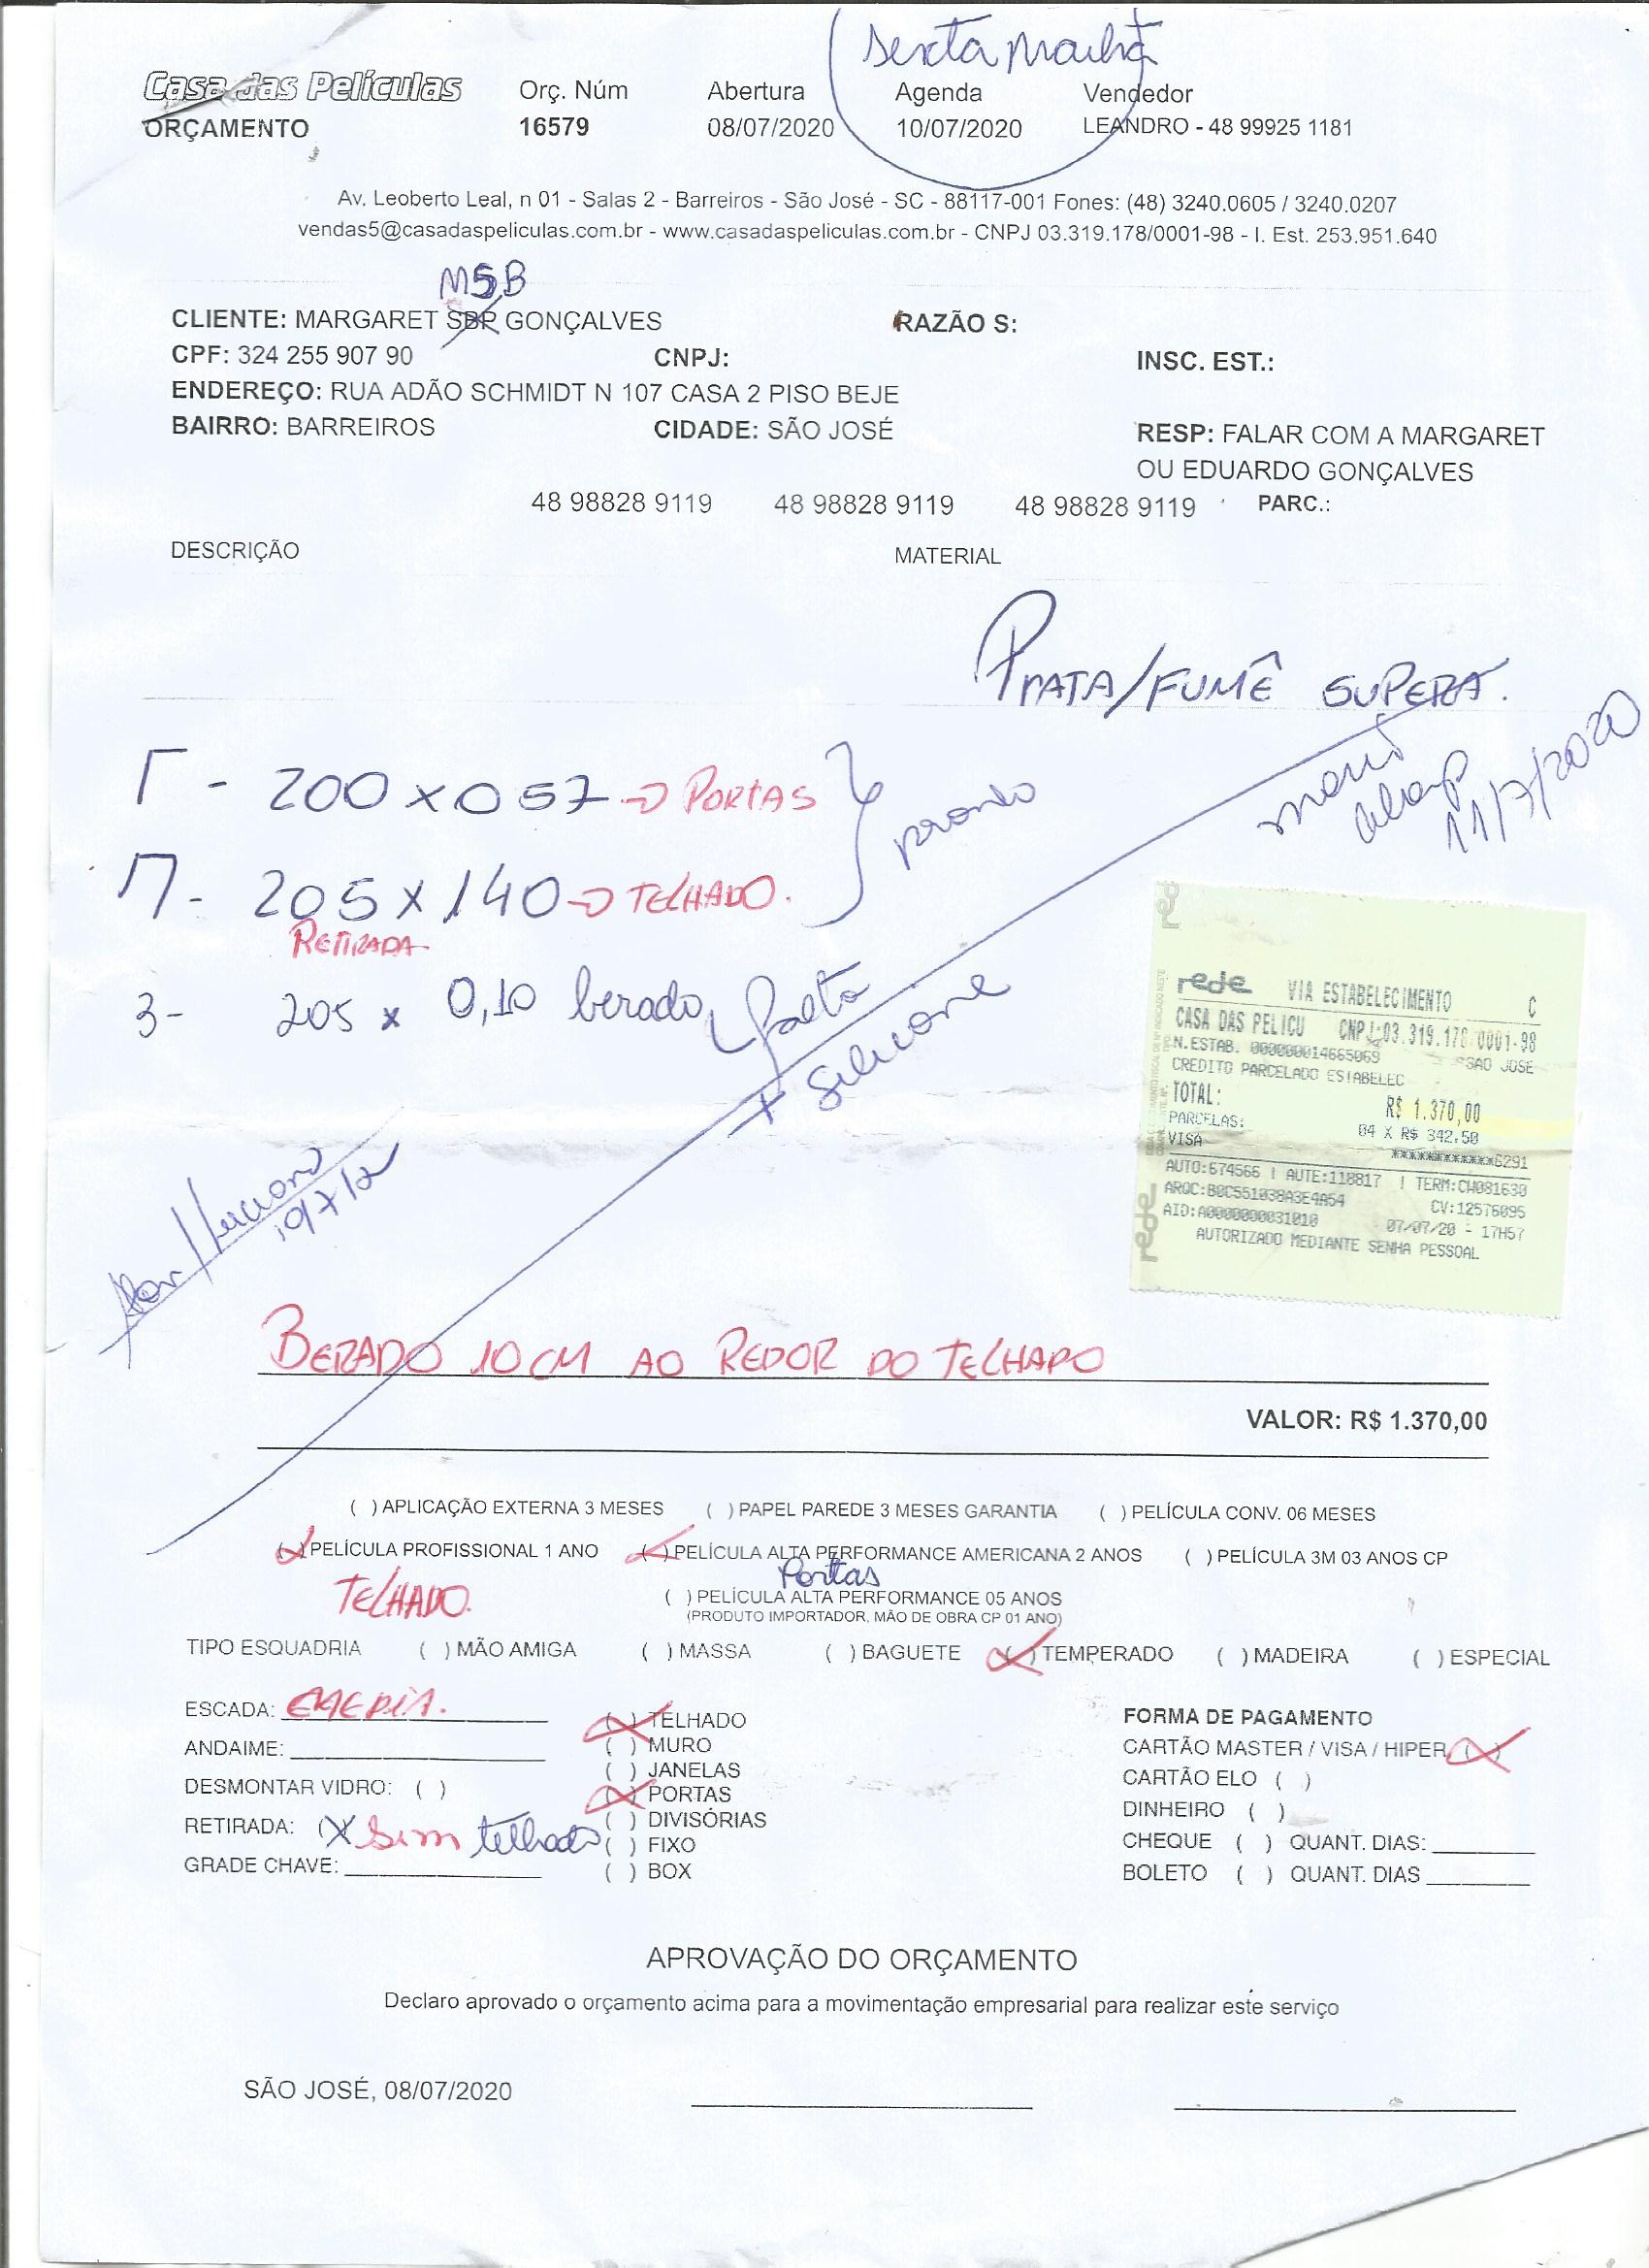 sexta manhã
Casa das Películas
ORÇAMENTO
Orç. Núm
16579
Abertura
08/07/2020
Agenda
10/07/2020
Vendedor
LEANDRO - 48 99925 1181
Av. Leoberto Leal, n 01 - Salas 2 - Barreiros - São José - SC - 88117-001 Fones: (48) 3240.0605 / 3240.0207
vendas5@casadaspeliculas.com.br - www.casadaspeliculas.com.br - CNPJ 03.319.178/0001-98 - I. Est. 253.951.640
MSB
CLIENTE: MARGARET SBP GONÇALVES RAZÃO S:
CPF: 324 255 907 90 CNPJ: INSC. EST.:
ENDEREÇO: RUA ADÃO SCHMIDT N 107 CASA 2 PISO BEJE
BAIRRO: BARREIROS CIDADE: SÃO JOSÉ RESP: FALAR COM A MARGARET
OU EDUARDO GONÇALVES
48 98828 9119 48 98828 9119 48 98828 9119 PARC.:
DESCRIÇÃO MATERIAL
PRATA/FUMÊ SUPERA.
- 200 x 057 → PORTAS
- 205 x 140 → TELHADO.
pronto
RETIRADA
3- 205 x 0,10 berado falta
+ silicone
11/7/2020
rede VIA ESTABELECIMENTO C
CASA DAS PELICU CNPJ:03.319.178/0001-98
N.ESTAB. 000000014665069 SAO JOSE
CREDITO PARCELADO ESTABELEC
TOTAL: R$ 1.370,00
PARCELAS: 04 X R$ 342,50
VISA ************6291
AUTO:674566 | AUTE:118817 | TERM:CW081630
ARQC:B0C551038A3E4A54 CV:12576095
AID:A0000000031010 07/07/20 - 17H57
AUTORIZADO MEDIANTE SENHA PESSOAL
rede
BERADO 10 CM AO REDOR DO TELHADO
VALOR: R$ 1.370,00
( ) APLICAÇÃO EXTERNA 3 MESES ( ) PAPEL PAREDE 3 MESES GARANTIA ( ) PELÍCULA CONV. 06 MESES
( ) PELÍCULA PROFISSIONAL 1 ANO ( ) PELÍCULA ALTA PERFORMANCE AMERICANA 2 ANOS ( ) PELÍCULA 3M 03 ANOS CP
TELHADO. Portas
( ) PELÍCULA ALTA PERFORMANCE 05 ANOS
(PRODUTO IMPORTADOR, MÃO DE OBRA CP 01 ANO)
TIPO ESQUADRIA ( ) MÃO AMIGA ( ) MASSA ( ) BAGUETE ( ) TEMPERADO ( ) MADEIRA ( ) ESPECIAL
ESCADA:
ANDAIME:
DESMONTAR VIDRO: ( )
RETIRADA: (X Sim telhado
GRADE CHAVE:
( ) TELHADO
( ) MURO
( ) JANELAS
( ) PORTAS
( ) DIVISÓRIAS
( ) FIXO
( ) BOX
FORMA DE PAGAMENTO
CARTÃO MASTER / VISA / HIPER ( )
CARTÃO ELO ( )
DINHEIRO ( )
CHEQUE ( ) QUANT. DIAS:
BOLETO ( ) QUANT. DIAS
APROVAÇÃO DO ORÇAMENTO
Declaro aprovado o orçamento acima para a movimentação empresarial para realizar este serviço
SÃO JOSÉ, 08/07/2020